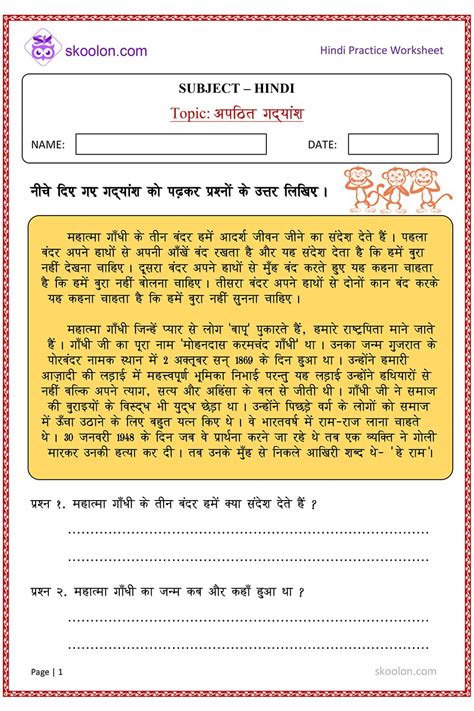 SK
skoolon.com
Hindi Practice Worksheet
SUBJECT – HINDI
Topic: अपठित गद्यांश
NAME:
DATE:
नीचे दिए गए गद्यांश को पढ़कर प्रश्नों के उत्तर लिखिए ।
महात्मा गाँधी के तीन बंदर हमें आदर्श जीवन जीने का संदेश देते हैं । पहला
बंदर अपने हाथों से अपनी आँखें बंद रखता है और यह संदेश देता है कि हमें बुरा
नहीं देखना चाहिए । दूसरा बंदर अपने हाथों से मुँह बंद करते हुए यह कहना चाहता
है कि हमें बुरा नहीं बोलना चाहिए । तीसरा बंदर अपने हाथों से दोनों कान बंद करके
यह कहना चाहता है कि हमें बुरा नहीं सुनना चाहिए ।
महात्मा गाँधी जिन्हें प्यार से लोग 'बापू' पुकारते हैं, हमारे राष्ट्रपिता माने जाते
हैं । गाँधी जी का पूरा नाम 'मोहनदास करमचंद गाँधी' था । उनका जन्म गुजरात के
पोरबंदर नामक स्थान में 2 अक्तूबर सन् 1869 के दिन हुआ था । उन्होंने हमारी
आज़ादी की लड़ाई में महत्त्वपूर्ण भूमिका निभाई परन्तु यह लड़ाई उन्होंने हथियारों से
नहीं बल्कि अपने त्याग, सत्य और अहिंसा के बल से जीती थी । गाँधी जी ने समाज
की बुराइयों के विरुद्ध भी युद्ध छेड़ा था । उन्होंने पिछड़े वर्ग के लोगों को समाज
में ऊँचा उठाने के लिए बहुत यत्न किए थे । वे भारतवर्ष में राम-राज लाना चाहते
थे । 30 जनवरी 1948 के दिन जब वे प्रार्थना करने जा रहे थे तब एक व्यक्ति ने गोली
मारकर उनकी हत्या कर दी । तब उनके मुँह से निकले आखिरी शब्द थे- 'हे राम'।
प्रश्न १. महात्मा गाँधी के तीन बंदर हमें क्या संदेश देते हैं ?
प्रश्न २. महात्मा गाँधी का जन्म कब और कहाँ हुआ था ?
Page | 1
skoolon.com